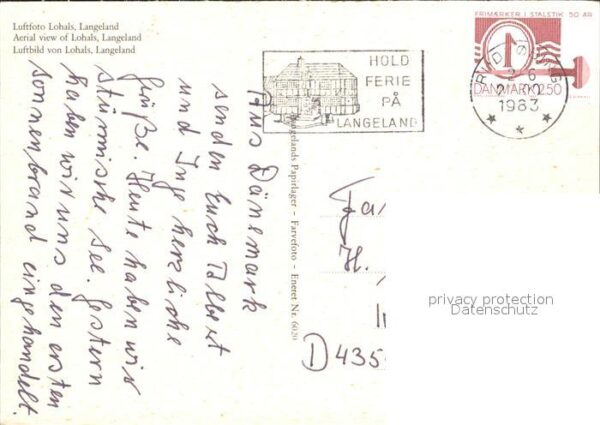 Luftfoto Lohals, Langeland
Aerial view of Lohals, Langeland
Luftbild von Lohals, Langeland
HOLD
FERIE
PÅ
LANGELAND
FRIMÆRKER I STÅLSTIK 50 ÅR
DANMARK 2.50
1983
Aus Dänemark
senden Euch Albert
und Inge herzliche
Grüße. Heute haben wir
stürmische See. Gestern
haben wir uns den ersten
Sonnenbrand eingehandelt.
Langelands Papirlager - Farvefoto - Eneret Nr. 6020
Fa
H.
D 435
privacy protection
Datenschutz